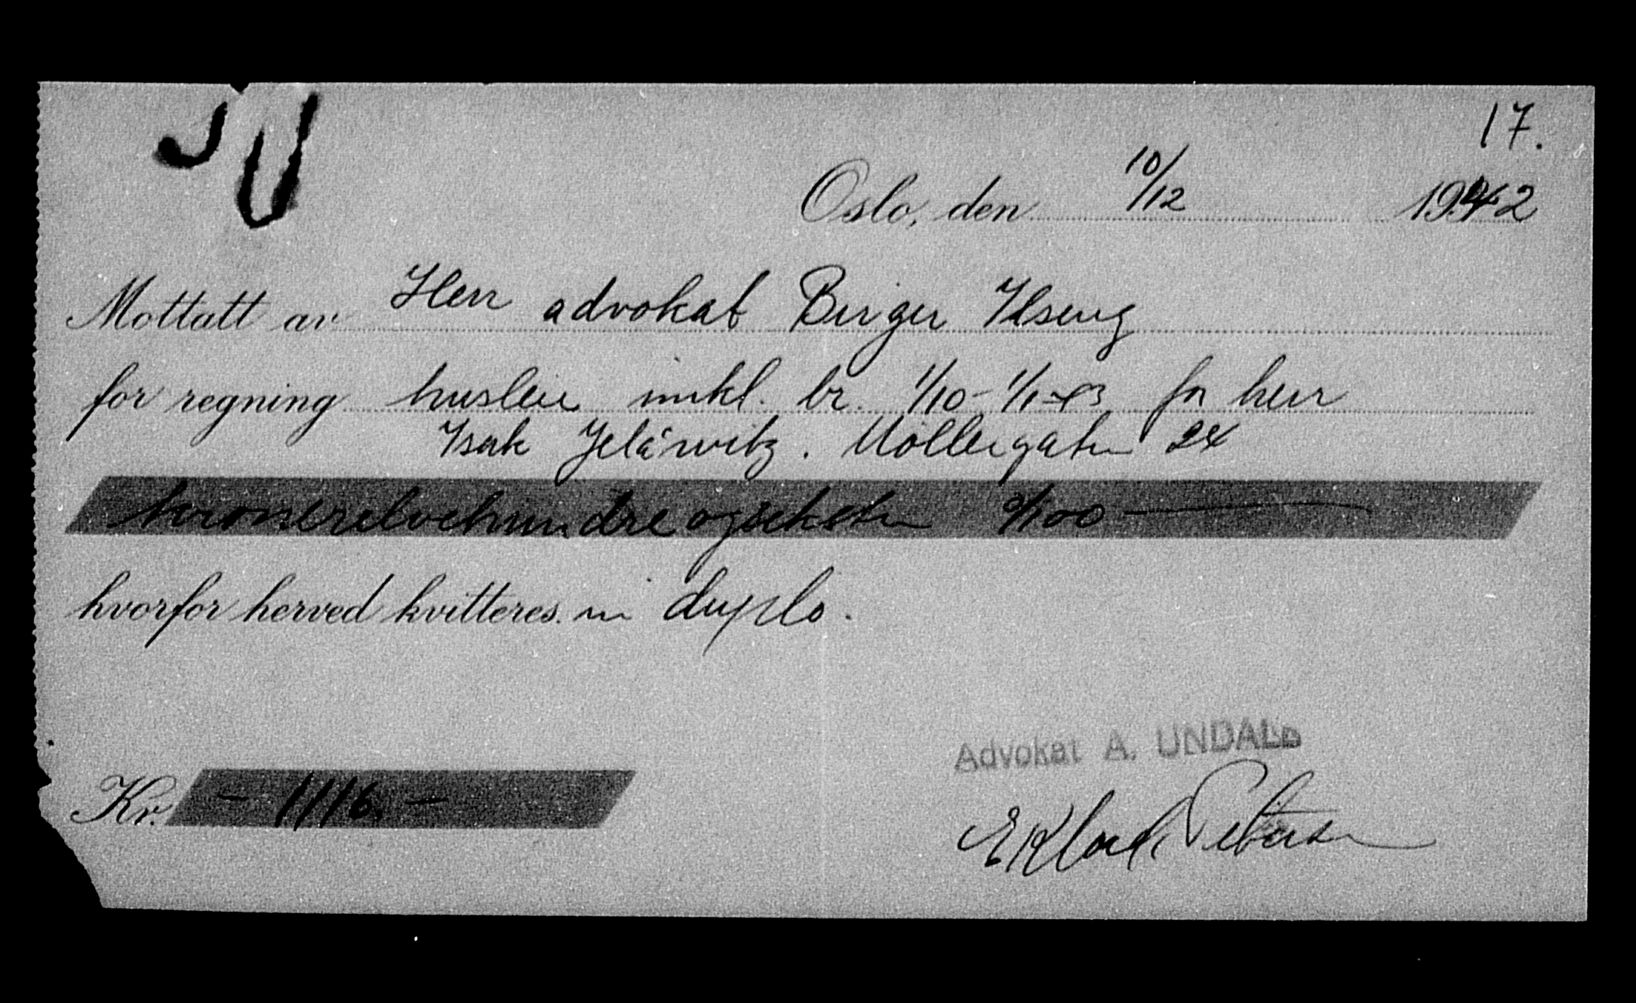 17.
Oslo, den 10/12 1942
Mottatt av Herr advokat Birger Ilseng
for regning husleie inkl. br. 1/10 - 1/1-43 for herr
Isak Jelàwitz. Möllergaten 24
kronerelvehundreogseksten 0/00
hvorfor herved kvitteres. in duplo.
Advokat A. UNDALD
Kr. - 1116. -